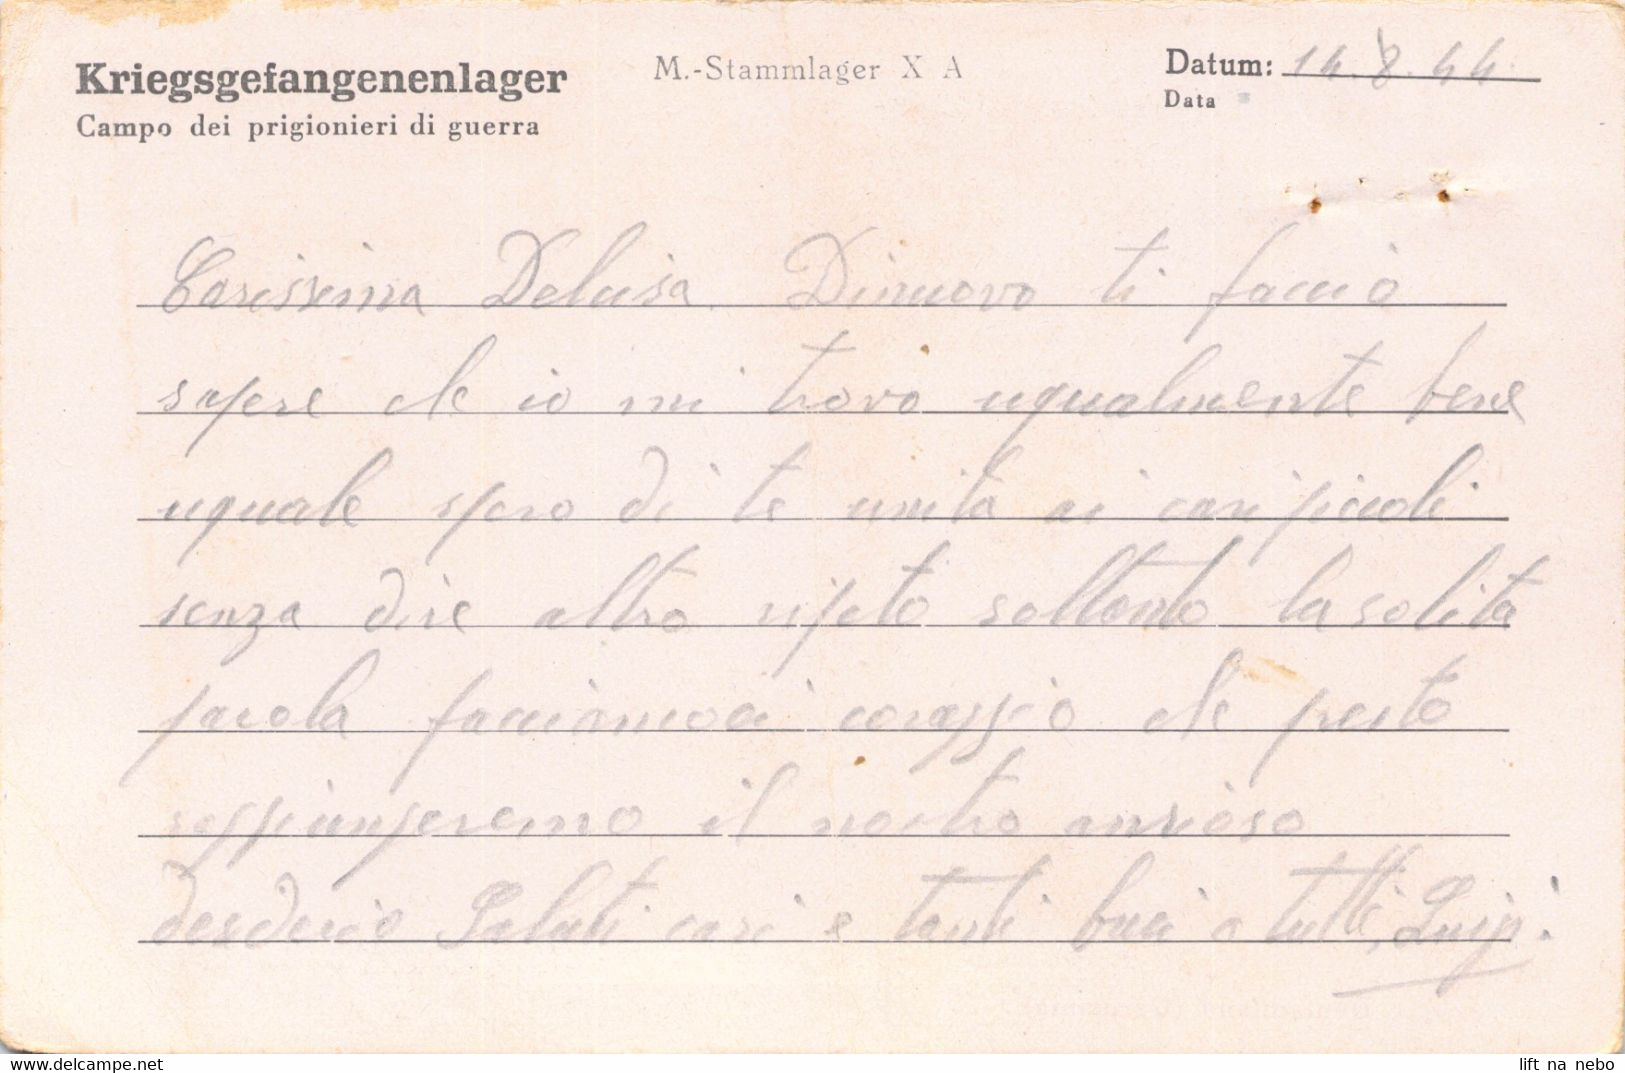 Kriegsgefangenenlager
Campo dei prigionieri di guerra
M.-Stammlager X A
Datum: 14.8.44.
Data
Carissima Delusa. Dinuovo ti faccio
sapere che io mi trovo ugualmente bene
uguale spero di te unita ai cari piccoli
senza dire altro ripeto soltanto la solita
parola facciamoci coraggio che presto
raggiungeremo il nostro ansioso
desderio Saluti cari e tanti baci a tutti, Luigi.
lift na nebo
www.delcampe.net